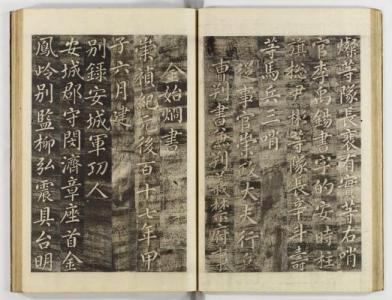 燦等隊長裵有華等右哨
官李禹錫書字的安時柱
旗總尹彬等隊長辛斗壽
等馬兵三哨
從事官崇政大夫行兵
曹判書兼判義禁府事
金始烱書
崇禎紀元後百十七年甲
子六月建
別錄安城軍功人
安城郡守閔濟章座首金
鳳岭別監柳弘震具台明